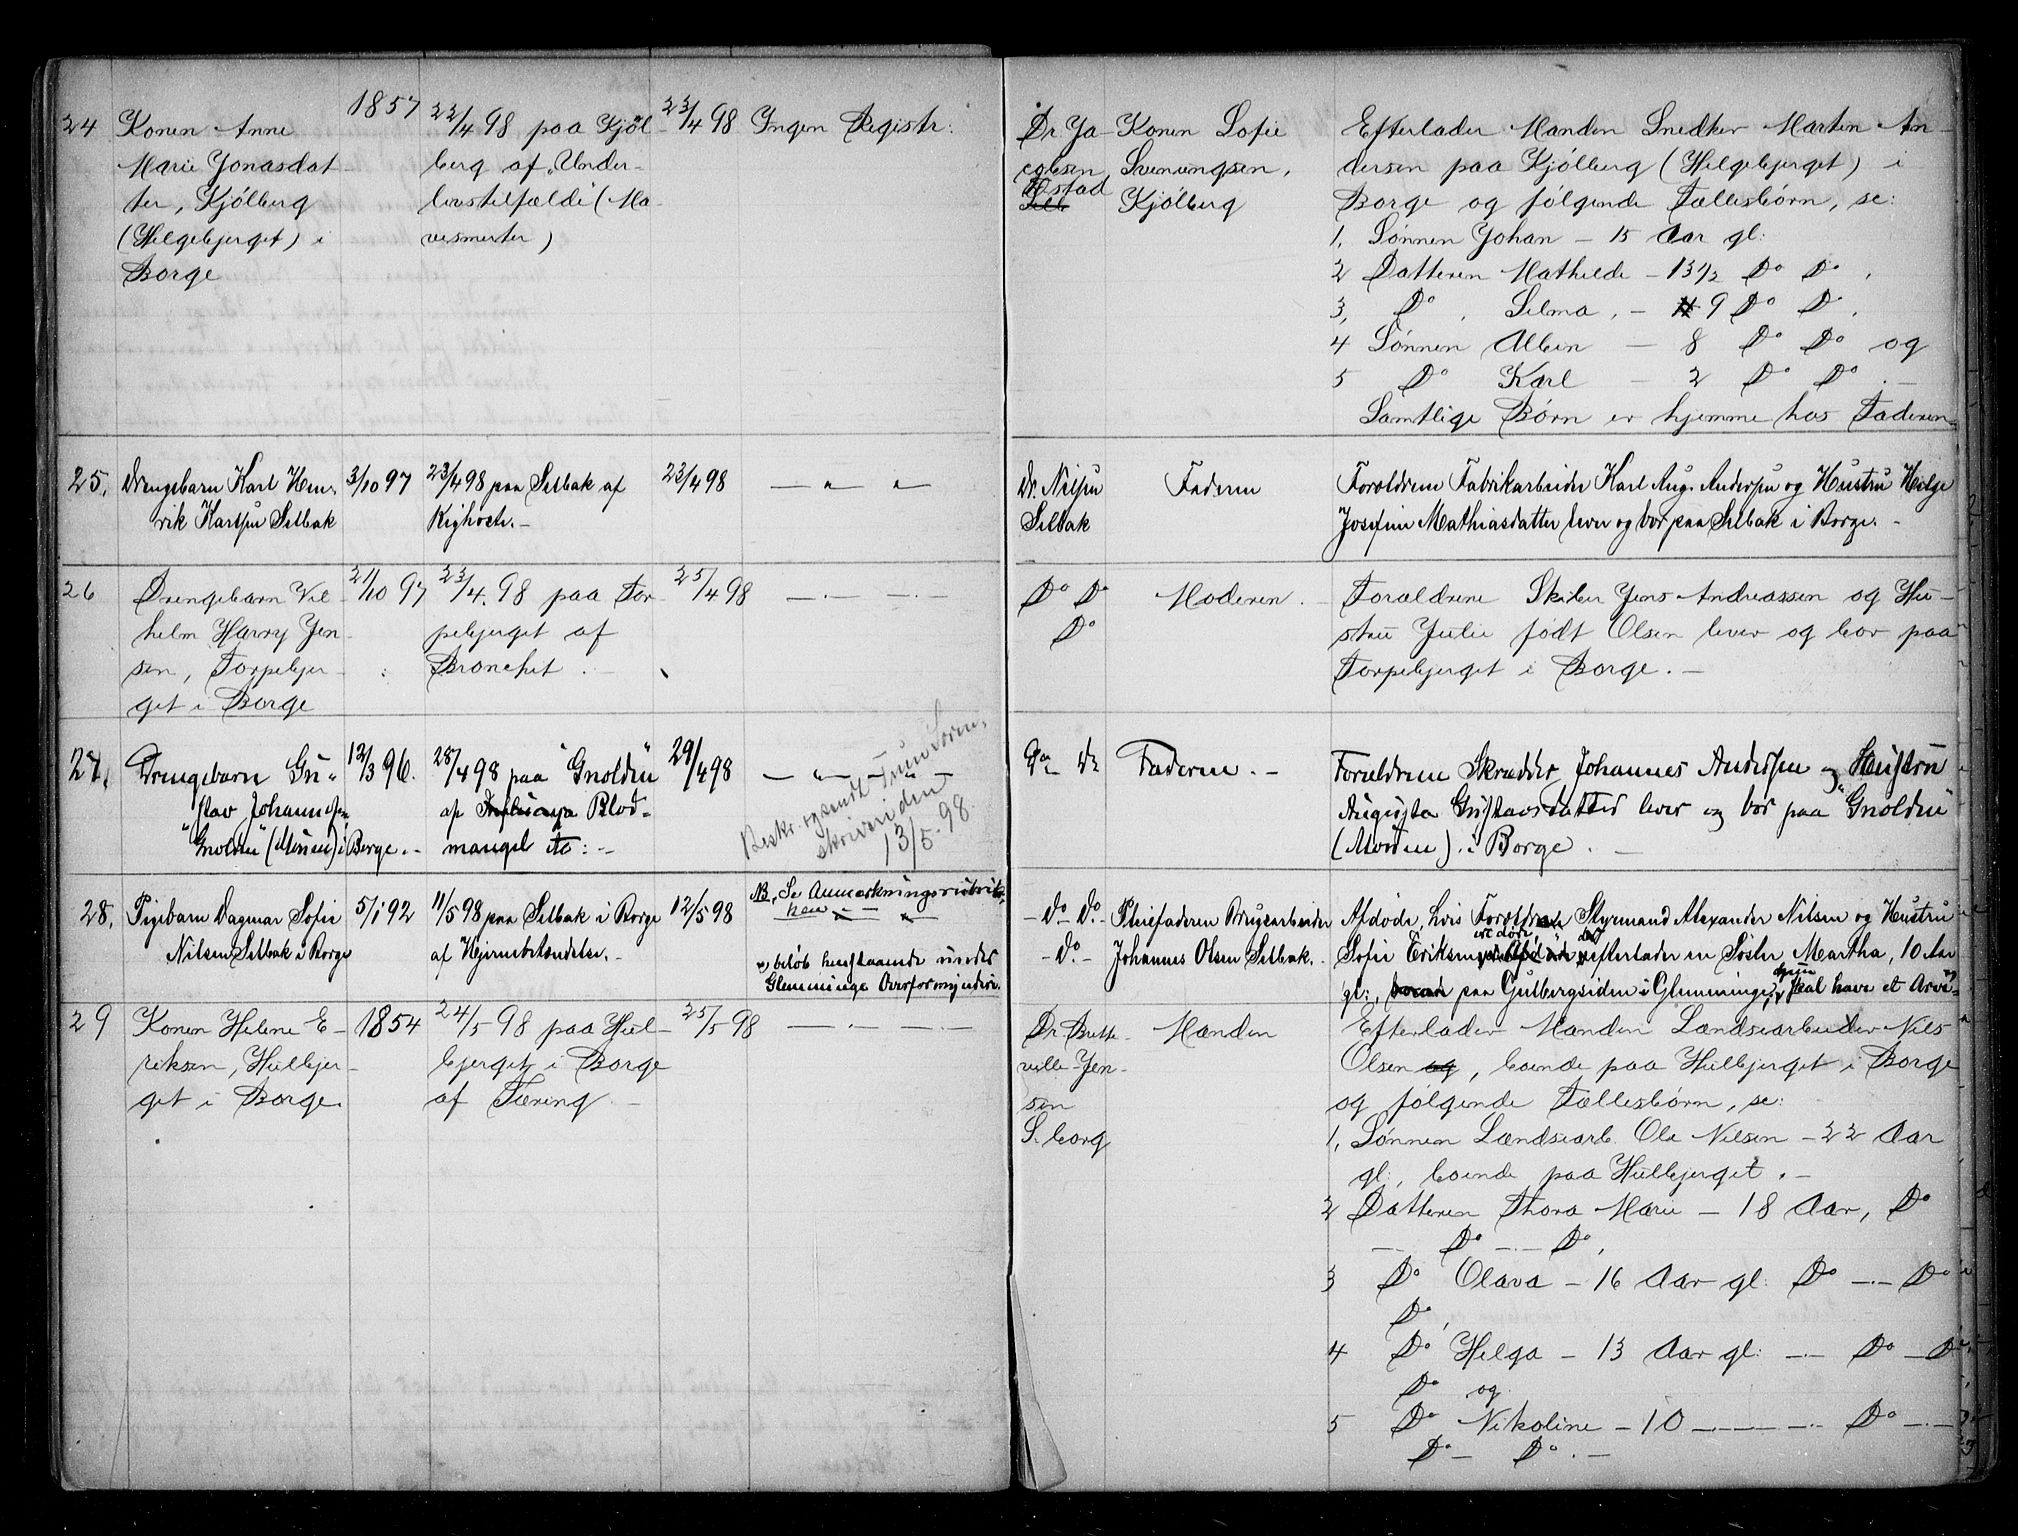 24 Konen Anne
Marie Jonasdat
ter, Kjölberg
(Helgebjerget) i
Borge
1857
22/4 98 paa Kjöl
berg af "Under-
livstilfælde (Ma
vesmerter)
23/4 98
Ingen Registr:
Dr. Ja
cobsen,
Fstad
Konen Sofie
Svenungsen,
Kjölberg
Efterlader Manden Snedker Martin An-
dersen paa Kjölberg (Helgebjerget) i
Borge og fölgende Fællesbörn, se:
1, Sönnen Johan – 15 Aar gl:
2 Datteren Mathilde – 13 1/2 Do Do,
3, Do, Selma, – 9 Do Do,
4 Sönnen Albin – 8 Do Do og
5 Do Karl – 2 Do Do. –
Samtlige Börn er hjemme hos Faderen
25. Drengebarn Karl Hen-
rik Karlsen Selbak
3/10 97
23/4 98 paa Selbak af
Kighoste. –
23/4 98
— " — " —
Dr. Nilsen
Selbak
Faderen
Foreldrene Fabrikarbeider Karl Aug. Andersen og Hustru Helge
Josefine Mathiasdatter lever og bor paa Selbak i Borge. –
26 Drengebarn Vil
helm Harry Jen
sen, Torpebjer-
get i Borge
21/10 97
23/4. 98 paa Tor
pebjerget af
Bronchit. –
25/4 98
— . — — . —
Do Do
Do
Moderen. –
Forældrene Skiber Jens Andreassen og Hu-
stru Julie födt Olsen lever og bor paa
Torpebjerget i Borge. –
27. Drengebarn Gu-
stav Johannesen
"Gnolden" (Moen) i Borge. –
12/3 96.
28/4 98 paa "Gnolden"
af Blod-
mangel etc: –
29/4 98
— " — — " —
Beskr. og sendt Tune Soren-
skriveriden
13/5. 98
Do Do
Faderen. –
Foreldrene Skrædder Johannes Andersen og Hustru
Augusta Gustavsdatter lever og bor paa "Gnolden"
(Moen). i Borge. –
28. Pigebarn Dagmar Sofie
Nilsen Selbak i Borge
5/1 92
11/5 98 paa Selbak i Borge
af Hjernebetændelse. –
12/5 98
NB, Se Anmærkningsrubrik-
ken – " – "
x) belöb henstaaende under
Glemminge Overformynderi.
– Do – Do. –
– Do. –
Pleiefaderen Brugsarbeider
Johannes Olsen Selbak. –
Afdöde, hvis Foreldre Styrmand Alexander Nilsen og Hustru
Sofie Eriksen er döde efterlader en Söster Martha, 10 Aar
gl:, paa Gulbergsiden i Glemminge, skal have et Arve-
29 Konen Helene E-
riksen, Hulbjer-
get i Borge.
1854
24/5 98 paa Hul-
bjerget i Borge
af Tæring. –
25/5 98
— . — — . —
Dr. Brette-
ville Jen-
sen
S.borg
Manden
Efterlader Manden Landsearbeider Nils
Olsen og, boende paa Hulbjerget i Borge
og fölgende Fællesbörn, se:
1, Sönnen Landsearb. Ole Nilsen – 22 Aar
gl:, boende paa Hulbjerget. –
2 Datteren Thora Marie – 18 Aar, Do
— Do — . — Do,
3 Do Olava – 16 Aar gl: Do — . — Do
Do,
4 Do Helga – 13 Aar gl: — . — Do — Do
Do og
5 Do Nikoline – 10 — . — — . — Do — . —
Do – Do. –